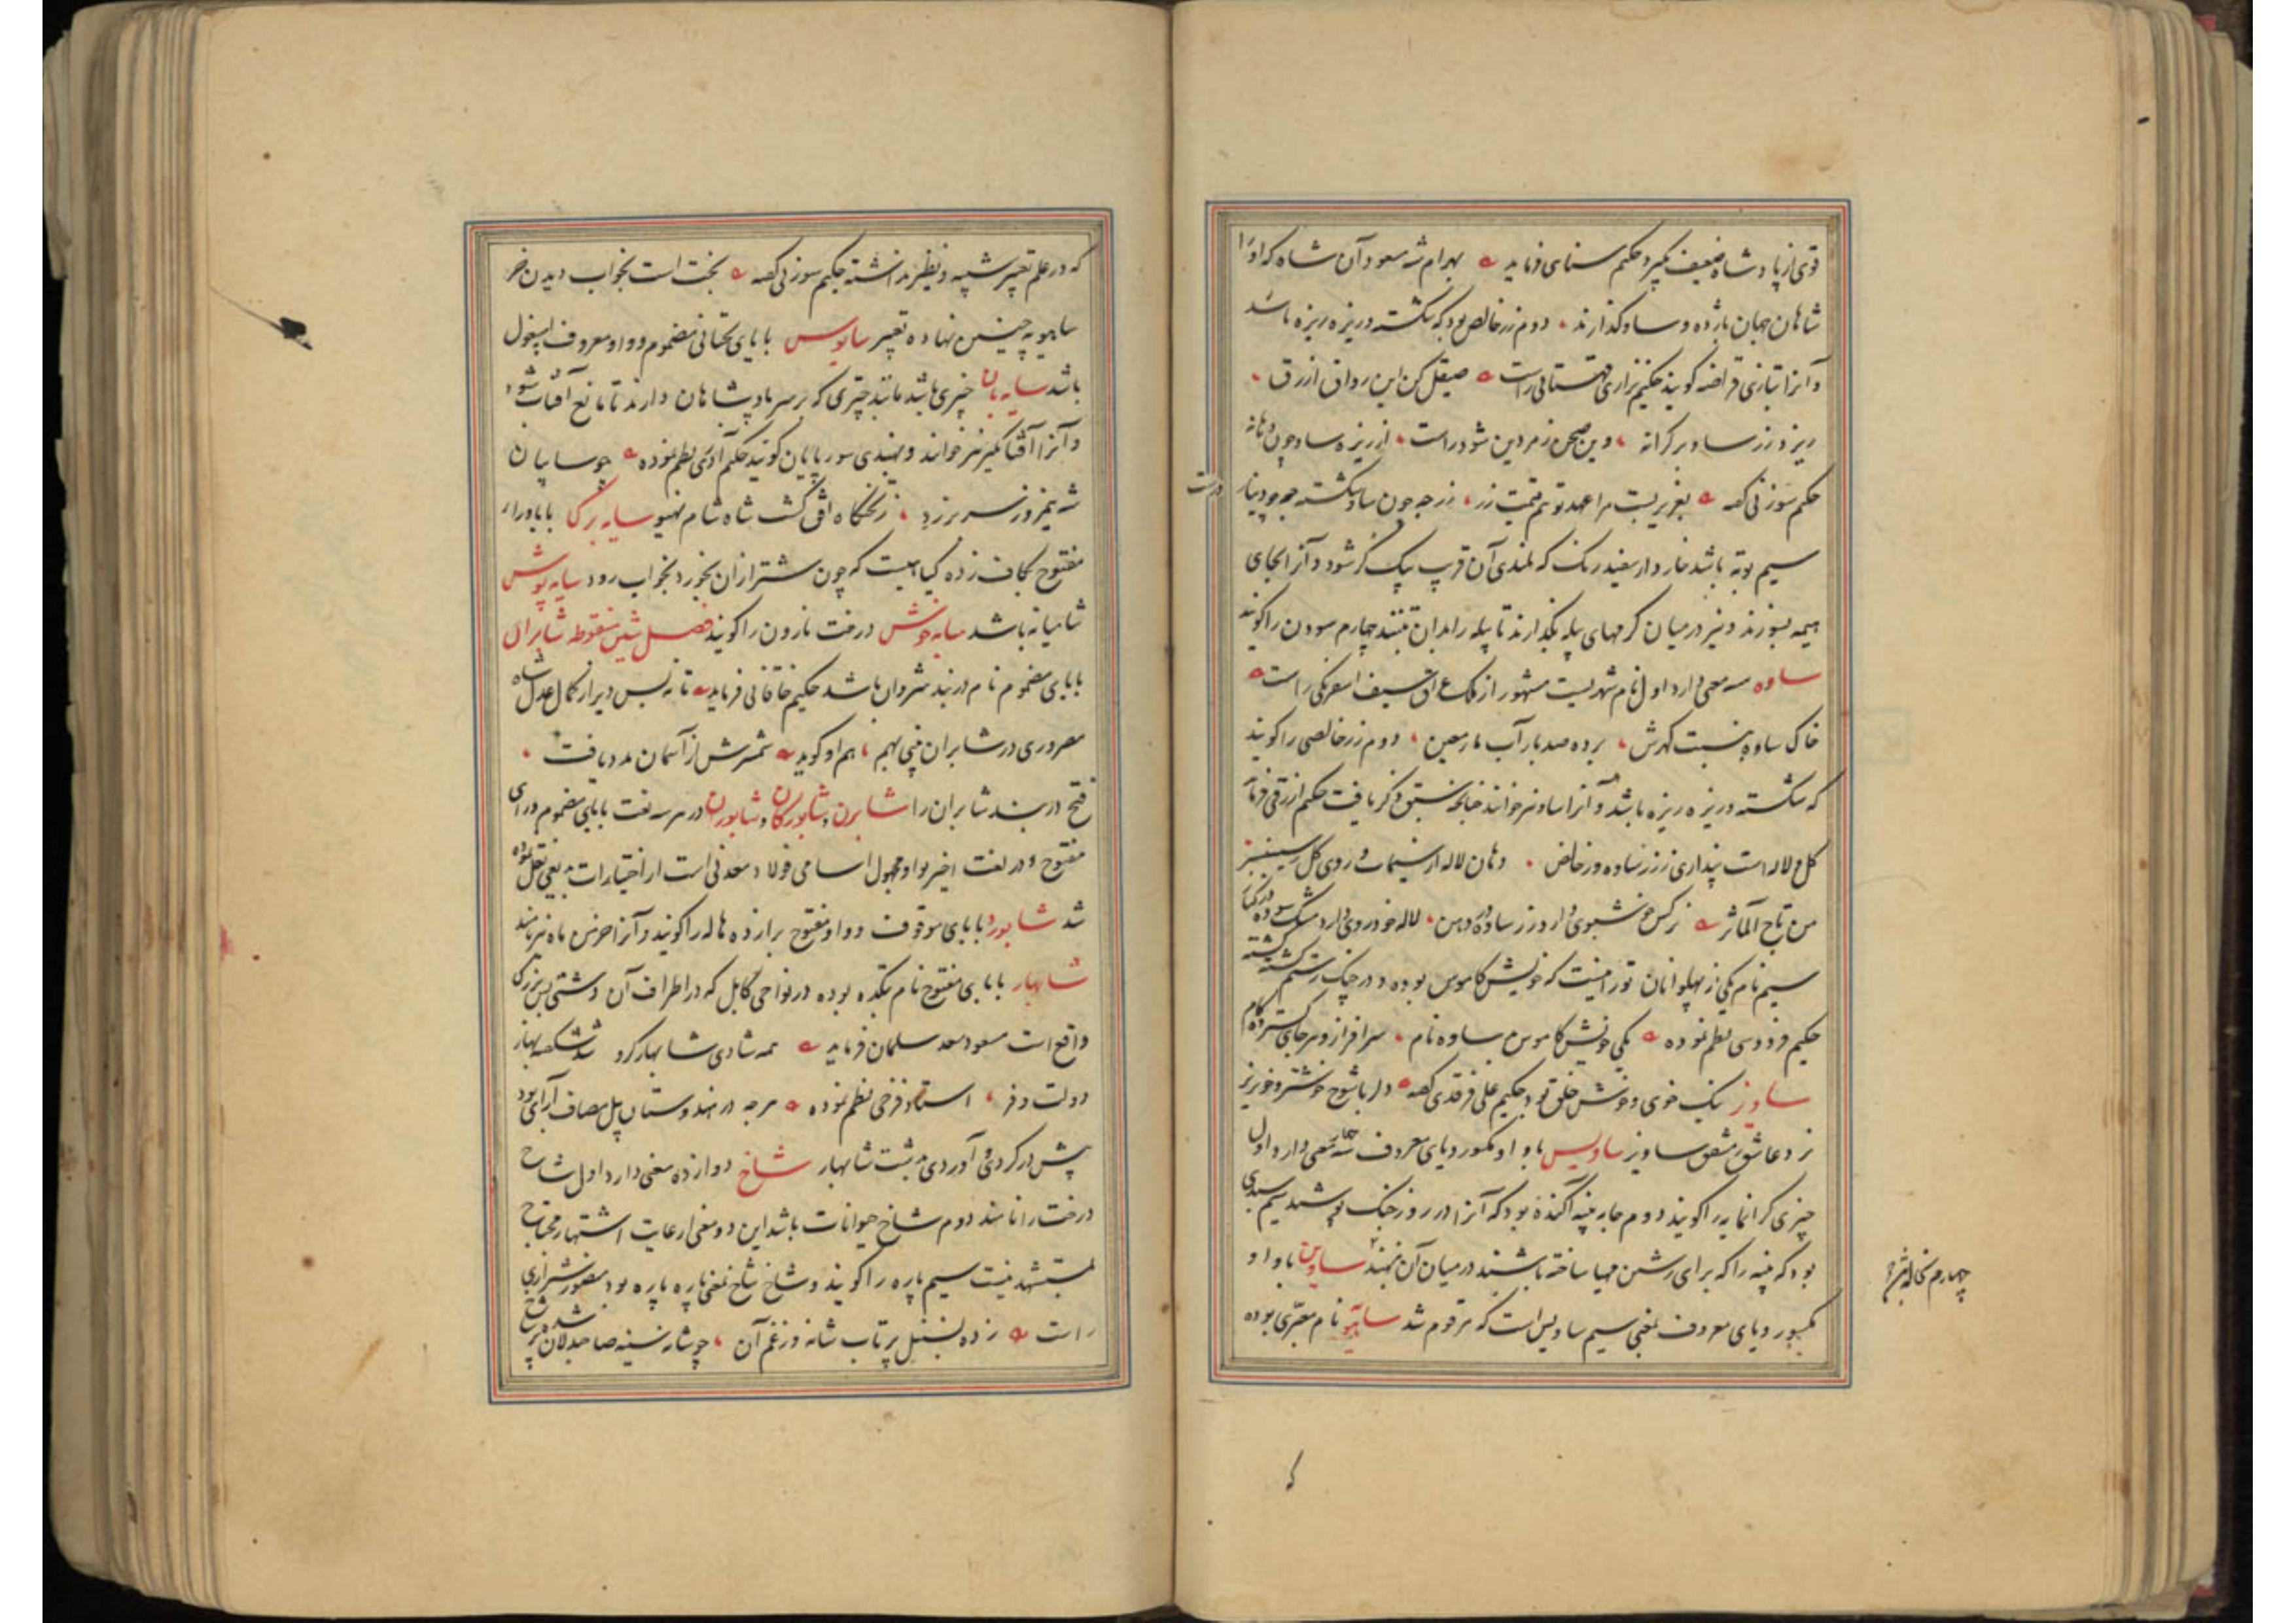 قوی از پادشاه ضعیف بگیرد حکیم سنای فرماید بهرام شه مسعود آن شاه که او را
شاهان جهان باژ ده و ساو گذارند دوم زر خالص بود که شکسته و ریزه ریزه باشد
و آنرا بتازی قراضه گویند حکیم نزاری قهستانی راست صیقل کن این رواق ازرق
ریزد زر ساو بر کرانه وین صحن زمردین شود راست از ریزه ساو چون دهانه
حکیم سوزنی گفته زر چه چون ساو شکسته چه چو دینار درست
سیم بوته باشد خاردار سفید رنگ که بلندی آن قریب بیک گز شود و آنرا بجای
هیمه بسوزند و نیز در میان کرمهای پیله بگذارند تا پیله را بدان تنند چهارم سودن را گویند
ساوه سه معنی دارد اول نام شهریست مشهور از ملک عراق سیف اسفرنگی راست
خاک ساوه بنسبت گهرش برده صد بار آب ماء معین دوم زر خالصی را گویند
که شکسته و ریزه ریزه باشد و آنرا ساو نیز خوانند چنانچه سبق ذکر یافت حکیم ازرقی فرماید
گل و لاله است پنداری ززر ساوه و زر خالص دهان لاله از
من تاج المآثر نرگس خوشبوی دارد زر ساوه در دهن لاله خودروی دارد مشک سوده در کنار
سیم نام یکی از پهلوانان تورانیست که خویش کاموس بوده و در جنگ رستم کشته گشته
حکیم فردوسی نظم نموده یکی خویش کاموس بد ساوه نام سرافراز و هر جای گسترده کام
ساویز نیک خوی و خوش خلق بود حکیم علی فرقدی گفته دلربا شوخ خوشتر و خونریز
نزد عاشق مشفق ساویز ساویس با واو مکسور و یای معروف سه معنی دارد اول
چیزی گرانمایه را گویند دوم جامه پنبه آگنده بود که آنرا در روز جنگ پوشند سیم سبدی
بود که پنبه را که برای رشتن مهیا ساخته باشند در میان آن نهند ساوین با واو
مکسور و یای معروف بمعنی سیم ساویس است که مرقوم شد سایو نام معبری بوده
چهارم نخاله
که
که در علم تعبیر شبیه و نظیر نداشته حکیم سوزنی گفته بخت است بخواب دیدن خر
ساهویه چنین نهاده تعبیر سایوس با یای تحتانی مضموم و واو معروف اسپغول
باشد سایه بان چیزی باشد مانند چتری که بر سر پادشاهان دارند تا مانع آفتاب شود
و آنرا آفتابگیر نیز خوانند و بهندی سورپایان گویند حکیم آذری نظم نموده چو سایبان
شه نیمروز سر برزد شاه شام سایه برگا با بای و رای
مفتوح بکاف زده گیاهیست که چون شتر از آن بخورد بخواب رود سایه پوش
شامیانه باشد سایه خوش درخت نارون را گویند فصل شین منقوطه شابران
با بای مضموم نام دربند شروان باشد حکیم خاقانی فرماید تا نه بس دیر از کمال عدل شاه
مصر و ری در شابران بینی بهم هم او گوید شمشیرش از آسمان مدد یافت
فتح دربند شابران را شابرن و شابورگان و شابورن در هر سه لغت با بای مضموم و رای
مفتوح و در لغت اخیر بواو مجهول اسامی فولاد معدنی است از اختیارات بدیعی نقل نموده
شد شابورد با بای موقوف و واو مفتوح برا زده هاله را گویند و آنرا خرمن ماه نیز نامند
شابهار با بای مفتوح نام بتکده بوده در نواحی کابل که در اطراف آن دشتی بس بزرگ
واقع است مسعود سعد سلمان فرماید همه شادی شابهار کرد شد شکفته بهار
دولت و فر استاد فرخی نظم نموده هرچه در هندوستان پیل مصاف آرای بود
پیش در کردی و آوردی بدشت شابهار شاخ دوازده معنی دارد اول شاخ
درخت را نامند دوم شاخ حیوانات باشد این دو معنی از غایت اشتهار محتاج
بمستشهد نیست سیم پاره را گویند و شاخ شاخ بمعنی پاره پاره بود منصور شیرازی
راست زده بسنبل پرتاب شانه وز غم آن چو شانه سینه صاحبدلان شده شخ شخ